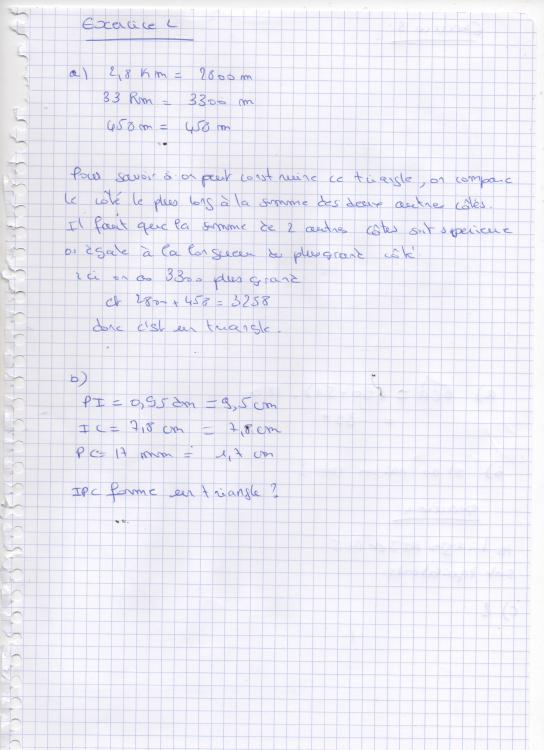 Exercice
a) 2,8 Km = 2800 m
33 Rm = 3300 m
458 m = 458 m
Pour savoir si on peut construire ce triangle, on compare
le côté le plus long à la somme des deux autres côtés.
Il faut que la somme de 2 autres côtés soit superieure
ou égale à la longueur du plus grand côté
ici on a 3300 plus grand
et 2800 + 458 = 3258
donc c'est un triangle.
b)
PI = 0,95 dm = 9,5 cm
IC = 7,8 cm = 7,8 cm
PC = 17 mm = 1,7 cm
IPC forme un triangle ?